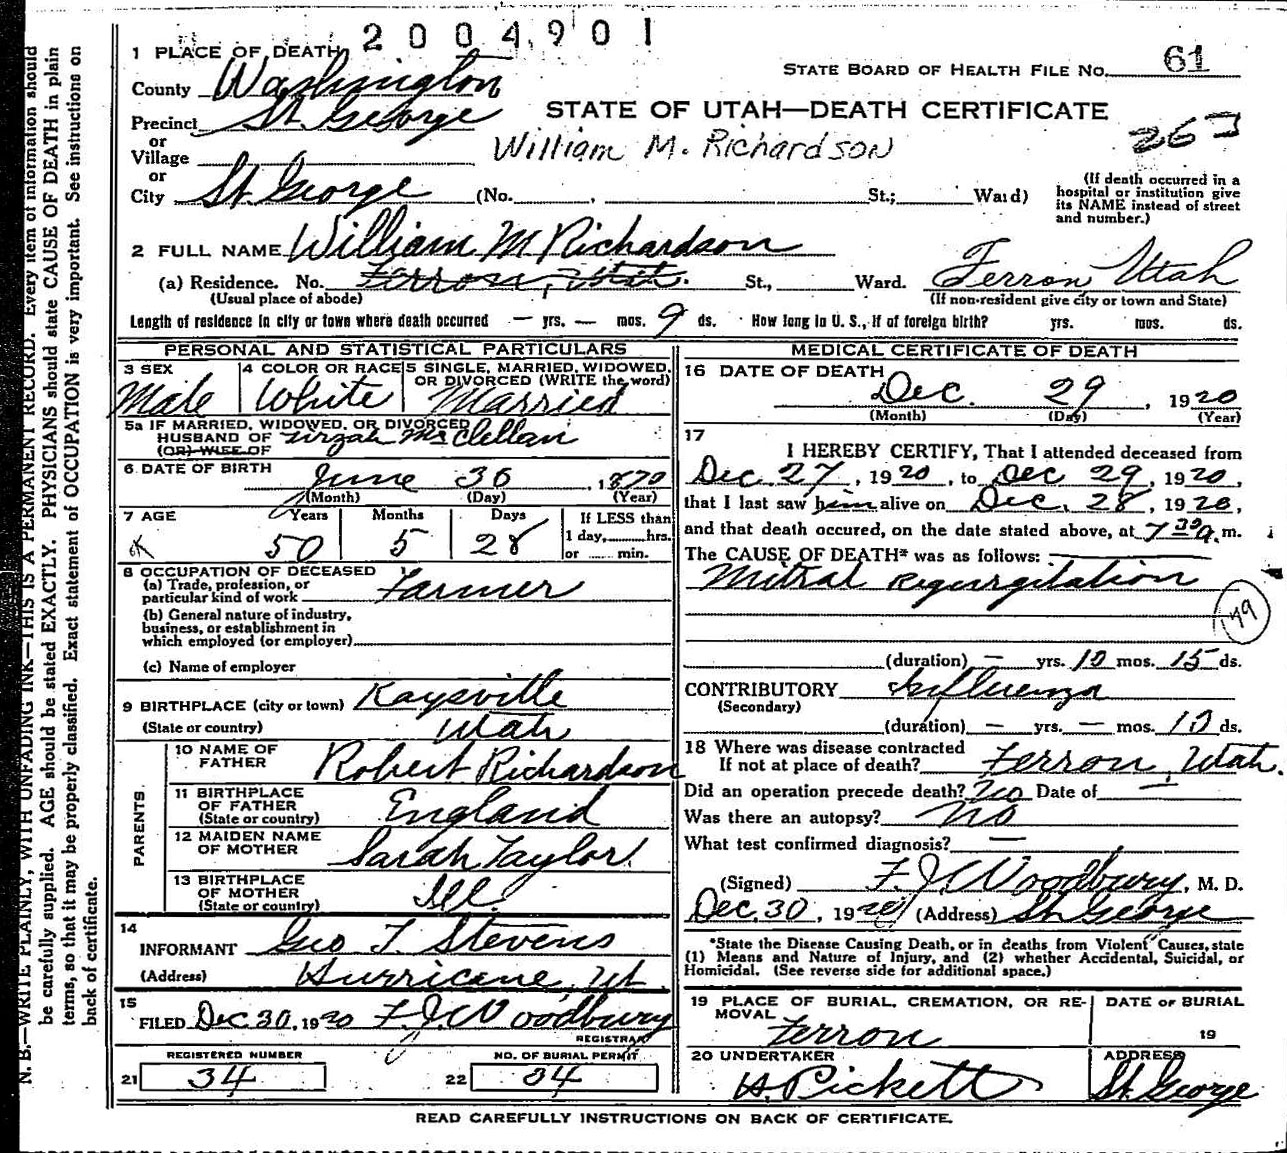 2004901
1 PLACE OF DEATH
STATE BOARD OF HEALTH FILE No. 61
County Washington
STATE OF UTAH—DEATH CERTIFICATE
Precinct St. George
William M. Richardson
263
or
Village
or
City St. George (No. , St.; Ward)
(If death occurred in a hospital or institution give its NAME instead of street and number.)
2 FULL NAME William M Richardson
(a) Residence. No. Ferron, Utah. St., Ward. Ferron Utah
(Usual place of abode)
(If non-resident give city or town and State)
Length of residence in city or town where death occurred — yrs. — mos. 9 ds. How long in U. S., if of foreign birth? yrs. mos. ds.
PERSONAL AND STATISTICAL PARTICULARS
3 SEX
Male
4 COLOR OR RACE
White
5 SINGLE, MARRIED, WIDOWED, OR DIVORCED (WRITE the word)
Married
5a IF MARRIED, WIDOWED, OR DIVORCED
HUSBAND OF Tirzah McClellan
(OR) WIFE OF
6 DATE OF BIRTH
June 30, 1870
(Month) (Day) (Year)
7 AGE Years Months Days
50 5 28
If LESS than
1 day, hrs.
or min.
8 OCCUPATION OF DECEASED
(a) Trade, profession, or
particular kind of work Farmer
(b) General nature of industry,
business, or establishment in
which employed (or employer)
(c) Name of employer
9 BIRTHPLACE (city or town) Kaysville
(State or country) Utah
PARENTS
10 NAME OF FATHER Robert Richardson
11 BIRTHPLACE OF FATHER (State or country) England
12 MAIDEN NAME OF MOTHER Sarah Taylor.
13 BIRTHPLACE OF MOTHER (State or country) Ill.
14
INFORMANT Geo T. Stevens
(Address) Hurricane, Ut.
15
FILED Dec 30, 1920 F. J. Woodbury
REGISTRAR
REGISTERED NUMBER
21 34
NO. OF BURIAL PERMIT
22 34
MEDICAL CERTIFICATE OF DEATH
16 DATE OF DEATH
Dec. 29, 1920
(Month) (Day) (Year)
17
I HEREBY CERTIFY, That I attended deceased from
Dec. 27, 1920, to Dec 29, 1920,
that I last saw him alive on Dec. 28, 1920,
and that death occured, on the date stated above, at 7 30 a. m.
The CAUSE OF DEATH* was as follows:
Mitral Regurgitation
(duration) — yrs. 10 mos. 15 ds.
CONTRIBUTORY Influenza
(Secondary)
(duration) — yrs. — mos. 10 ds.
18 Where was disease contracted
If not at place of death? Ferron, Utah.
Did an operation precede death? No Date of —
Was there an autopsy? No
What test confirmed diagnosis? —
(Signed) F. J. Woodbury, M. D.
Dec. 30, 1920 (Address) St. George
*State the Disease Causing Death, or in deaths from Violent Causes, state
(1) Means and Nature of Injury, and (2) whether Accidental, Suicidal, or
Homicidal. (See reverse side for additional space.)
19 PLACE OF BURIAL, CREMATION, OR REMOVAL
Ferron
DATE OF BURIAL
19
20 UNDERTAKER
H. Pickett
ADDRESS
St. George
READ CAREFULLY INSTRUCTIONS ON BACK OF CERTIFICATE.
N. B.—WRITE PLAINLY, WITH UNFADING INK—THIS IS A PERMANENT RECORD. Every item of information should
be carefully supplied. AGE should be stated EXACTLY. PHYSICIANS should state CAUSE OF DEATH in plain
terms, so that it may be properly classified. Exact statement of OCCUPATION is very important. See instructions on
back of certificate.